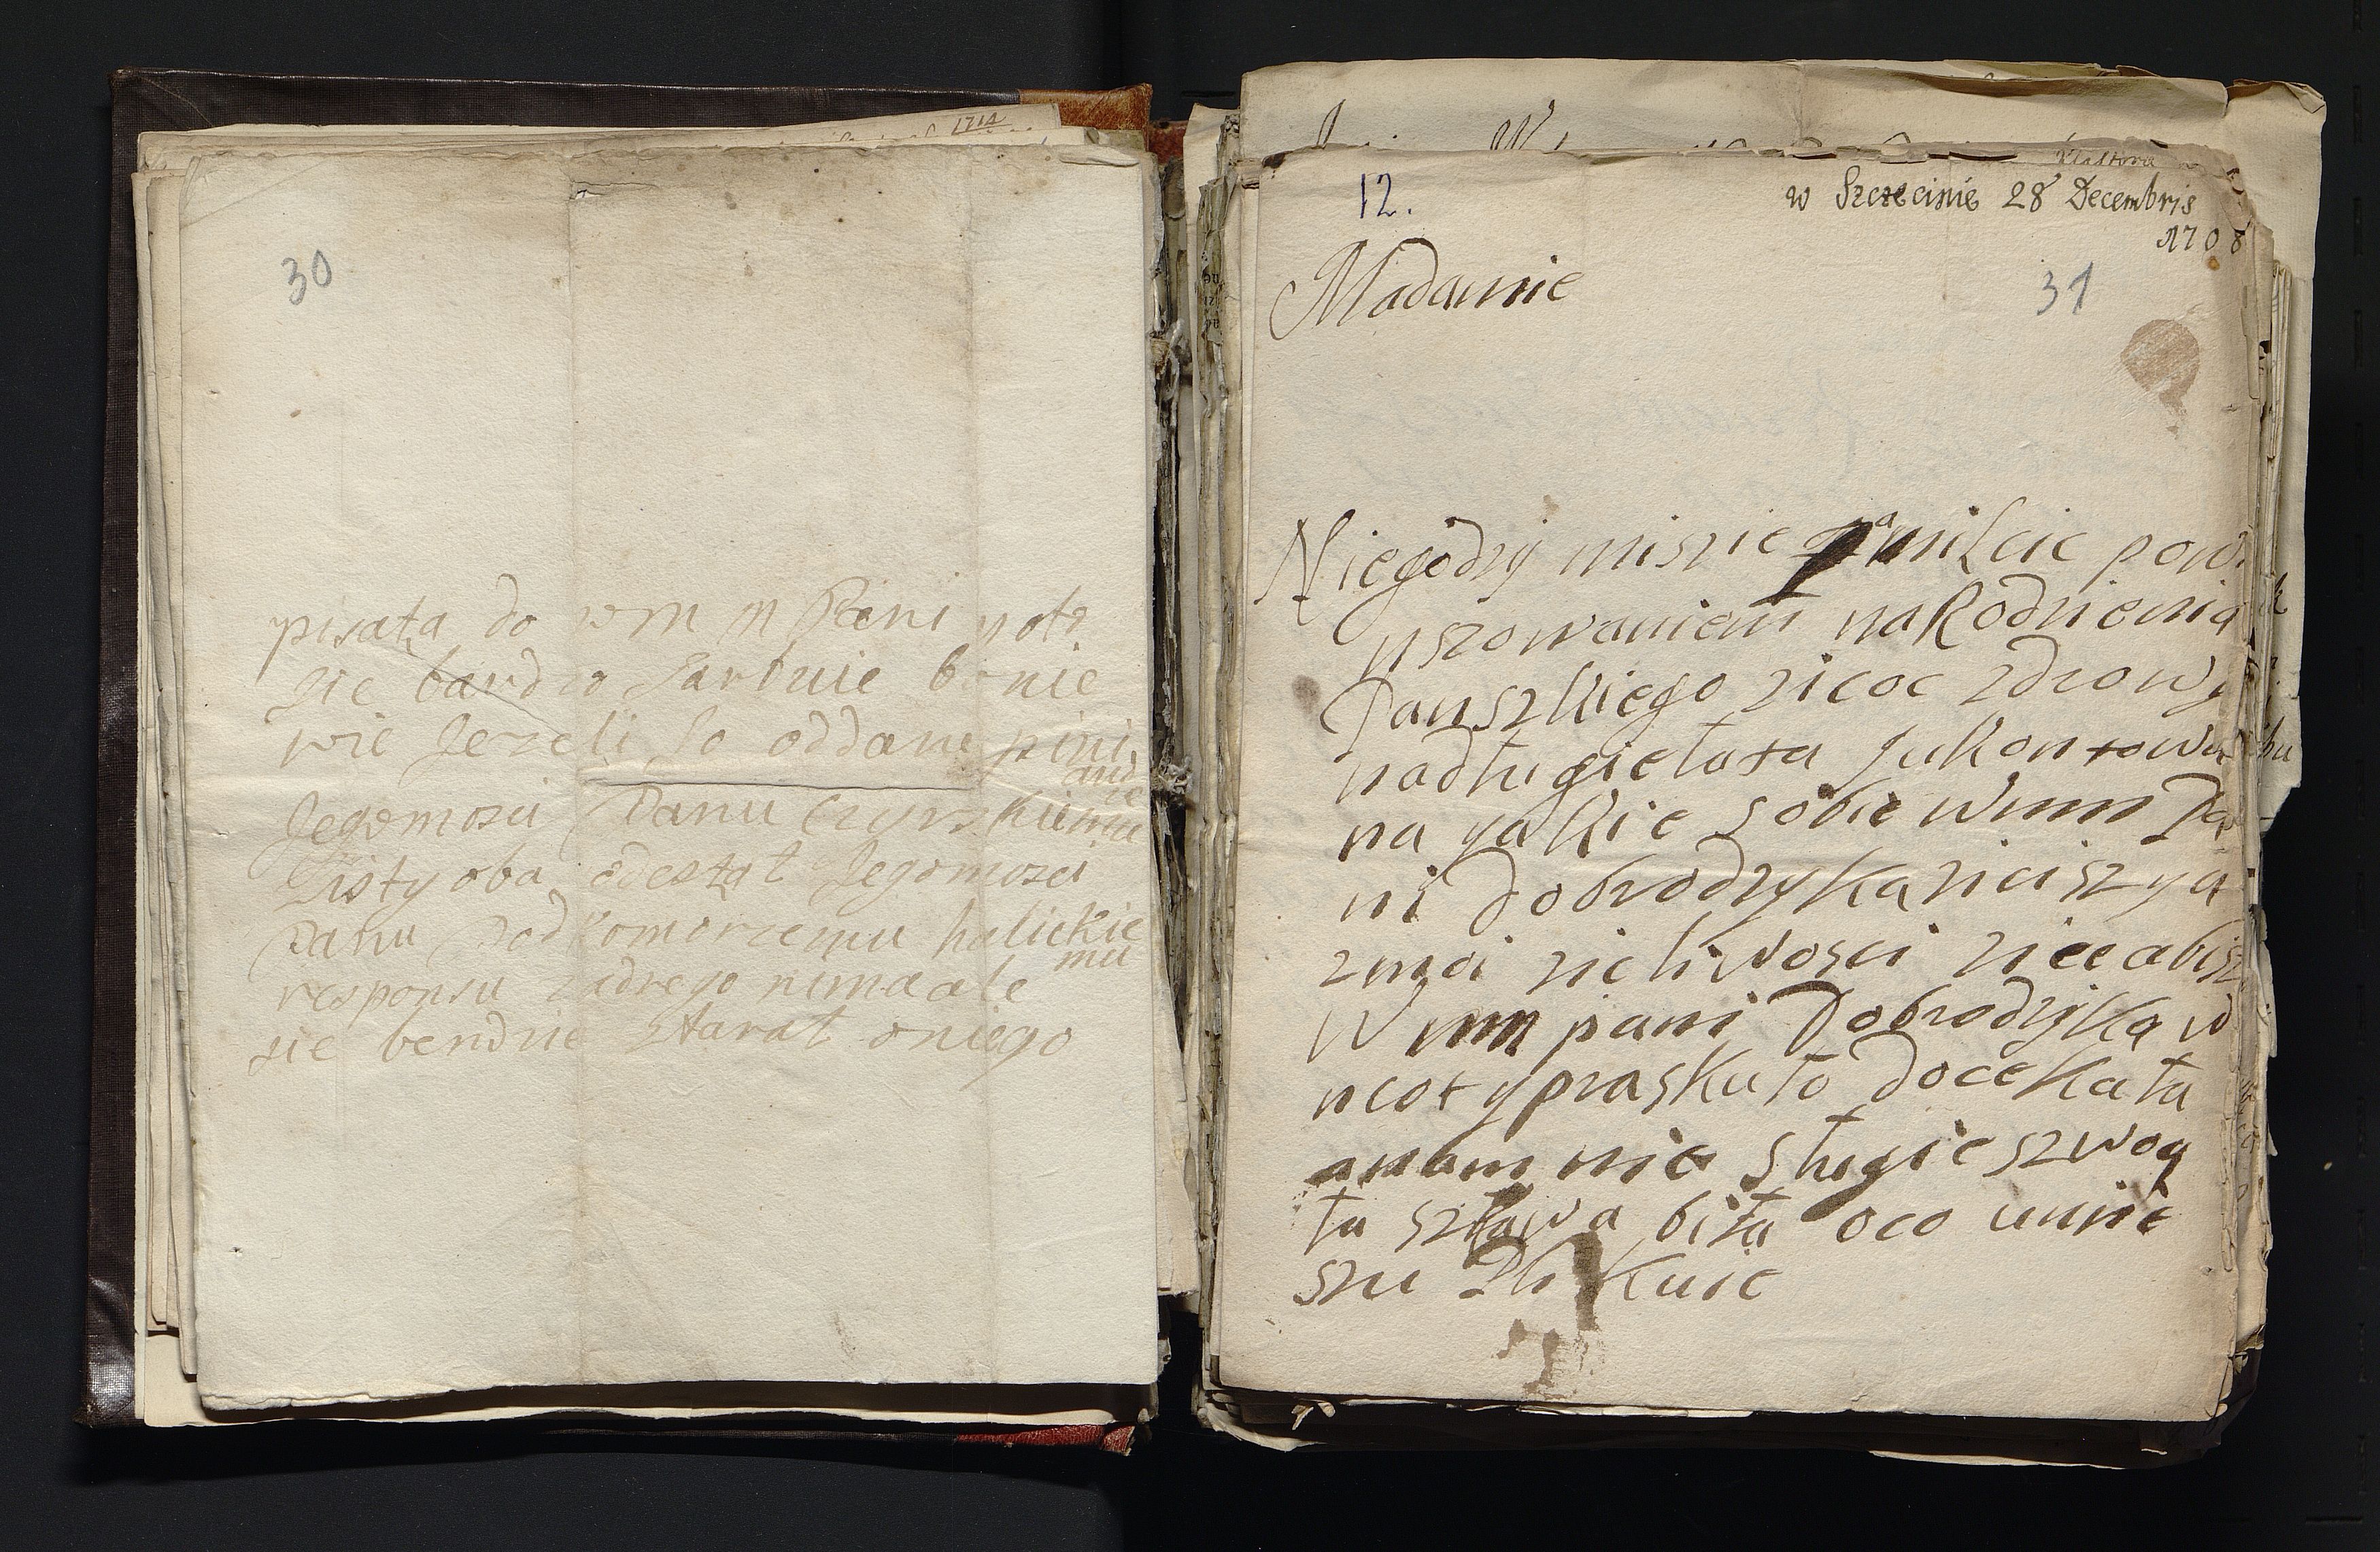 30
pisała do w m m Pani y otr
sie bardzo Farbuie bo nie
wie Jezeli so oddane pini
andze
Jegomosci Panu Czyrskiemu
Listy oba odesząl Jegomosci
Panu Podkomorzemu halickie
mu
responsu zadnego nima ale
sie bendzie starał oniego
12.
w Szczecinie 28 Decembris
1708
31
Madamie
Niegodzy misrie pamilcie powi
nszowaniem nakodnienia
Panszkiego zicoc zdrowy
nadługie lata jukontowa
na yakie sobie Wmm Pa
ni dobrodzyka ziciszya
zmoi zicliwosci zice abisz
Wmm pani Dobrodzyka w
ncot y praskuto docekała
amam nie sługie szwoą
ta szława biła oco unnie
szu